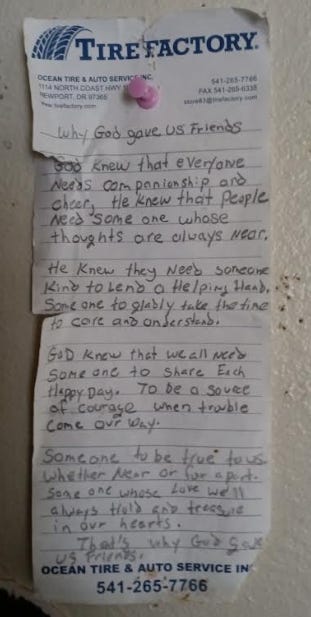 TIRE FACTORY.
OCEAN TIRE & AUTO SERVICE INC.
1114 NORTH COAST HWY
NEWPORT, OR 97365
www.tirefactory.com
541-265-7766
FAX 541-265-6335
store61@tirefactory.com
Why God gave us Friends
God knew that everyone
Needs companionship and
cheer, He knew that People
Need some one whose
thoughts are always Near.
He knew they Need someone
Kind to Lend a Helping Hand.
Some one to glably take the time
to care and understand.
GOD knew that we all need
Some one to share Each
Happy Day. To be a source
of courage when trouble
come our way.
Someone to be true to us
whether Near or far apart.
Some one whose Love we'll
always hold and treasure
in our hearts.
That's why God gave
us Friends.
OCEAN TIRE & AUTO SERVICE IN
541-265-7766